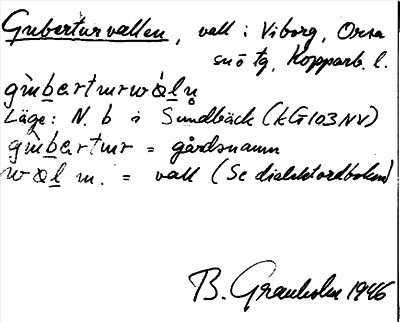 Guberturvallen, vall i Viborg, Orsa
sn o tg, Kopparb. l.
gubarturwàln
Läge: N. b i Sundbäck (kG103NV)
gubartur = gårdsnamn
wal m. = vall (Se dialektordboken)
B. Granholm 1946